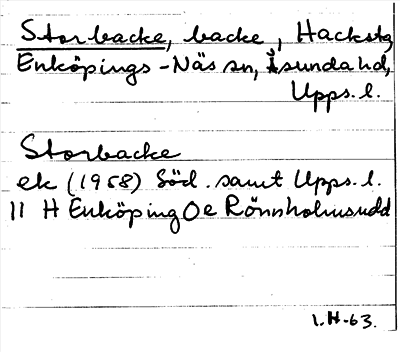 Storbacke, backe, Hackstg,
Enköpings-Näs sn, Åsunda hd,
Upps. l.
Storbacke
ek (1958) Söd. samt Upps. l.
11 H Enköping Oe Rönnholmsudd
1.H-63.